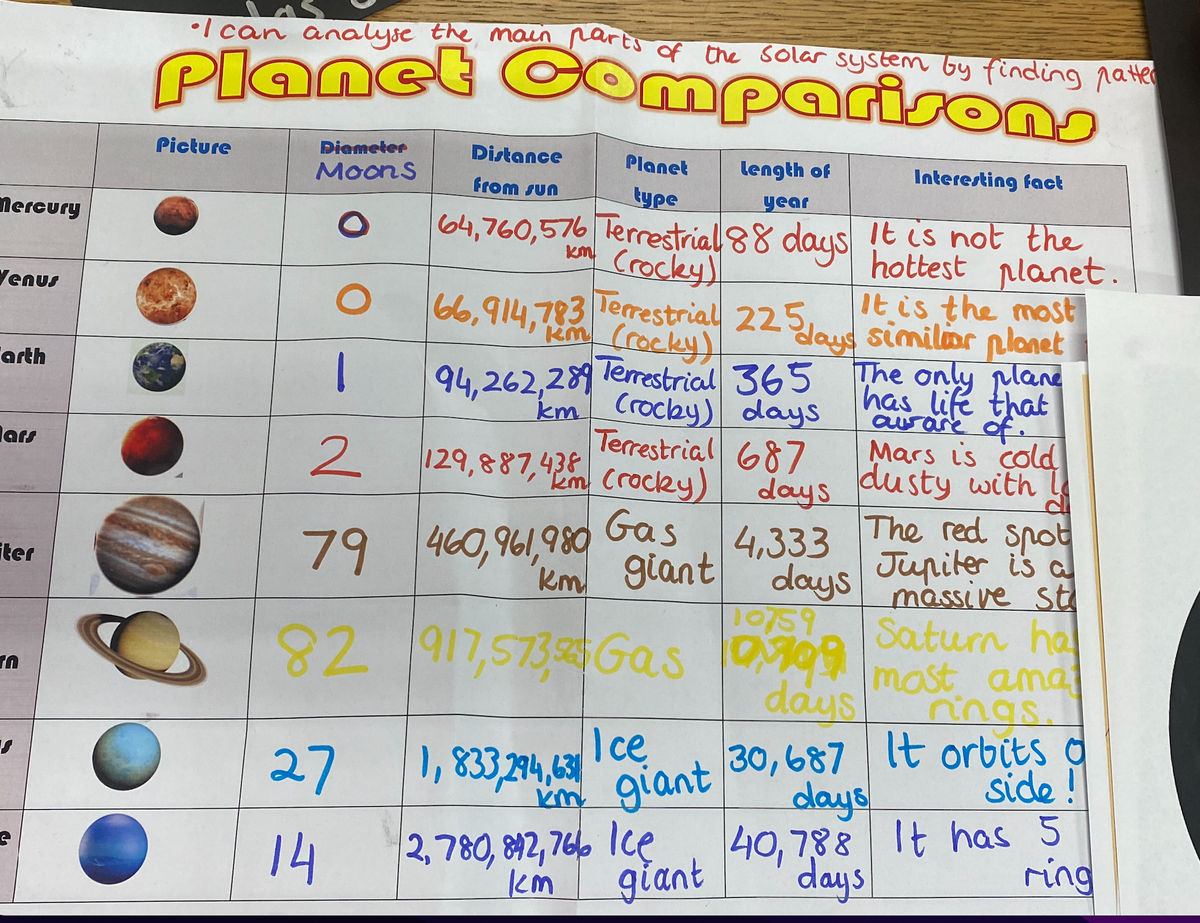 •I can analyse the main parts of the solar system by finding patte
Planet Comparisons
Picture
Diameter
Moons
Distance
from sun
Planet
type
Length of
year
Interesting fact
Mercury
0
64,760,576
km
Terrestrial
(rocky)
88 days
It is not the
hottest planet.
Venus
0
66,914,783
km
Terrestrial
(rocky)
225
days
It is the most
similiar planet
arth
1
94,262,289
km
Terrestrial
(rocky)
365
days
The only plane
has life that
aware of.
ars
2
129,887,438
km
Terrestrial
(rocky)
687
days
Mars is cold
dusty with
iter
79
460,961,980
km
Gas
giant
4,333
days
The red spot
Jupiter is a
massive sto
rn
82
917,573,
Gas
10759
days
Saturn ha
most ama
rings.
s
27
1,833,294,631
km
Ice
giant
30,687
days
It orbits o
side!
e
14
2,780,892,766
km
Ice
giant
40,788
days
It has 5
ring